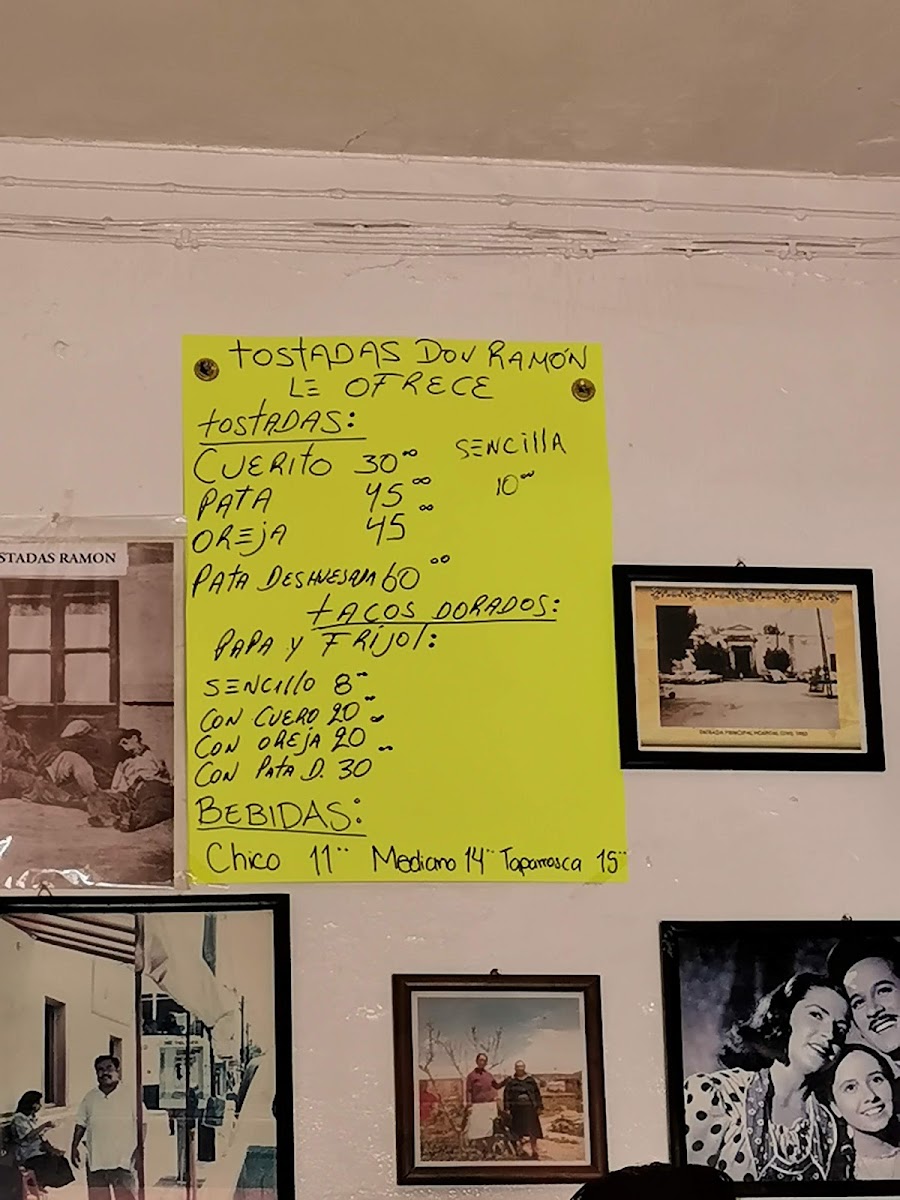 TOSTADAS DON RAMÓN
LE OFRECE
TOSTADAS:
CUERITO 30⁰⁰ SENCILLA
PATA 45⁰⁰ 10⁰⁰
OREJA 45⁰⁰
PATA DESHUESADA 60⁰⁰
TACOS DORADOS:
PAPA Y FRIJOL:
SENCILLO 8⁰⁰
CON CUERO 20⁰⁰
CON OREJA 20⁰⁰
CON PATA D. 30⁰⁰
BEBIDAS:
Chico 11⁰⁰ Mediano 14⁰⁰ Taparrosca 15⁰⁰
STADAS RAMON
ENTRADA PRINCIPAL HOSPITAL CIVIL